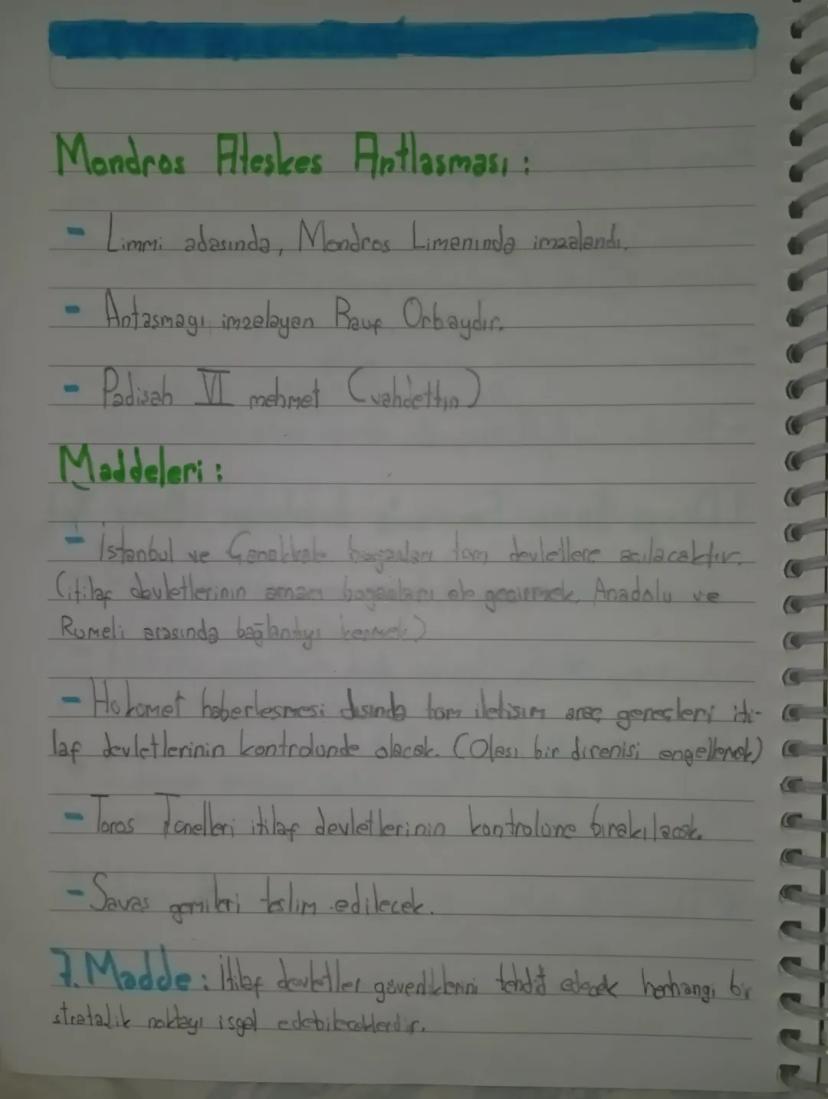 Mondros Ateskes Antlasması:
- Limmi adasında, Mondros Limanında imzalandı.
- Antasmayı imzalayan Rauf Orbaydır.
- Padisah VI mehmet (vahdettin)
Maddeleri:
- İstanbul ve Çanakkale bogazları tom devletlere acılacaktır.
(itilaf devletlerinin amacı bogazları ele gecirmek, Anadolu ve
Rumeli arasında bağlantıyı kesmek)
- Hokomet haberlesmesi dısında tom iletisim arac gerecleri iti-
laf devletlerinin kontrolunde olacak. (Olası bir direnisi engellemek)
- Toros Tonelleri itilaf devletlerinin kontrolune bırakılacak.
- Savas gemileri teslim edilecek.
7. Madde: İtilaf devletler güvenliklerini tehdit edecek herhangi bir
stratalik noktayı isgal edebileceklerdir.